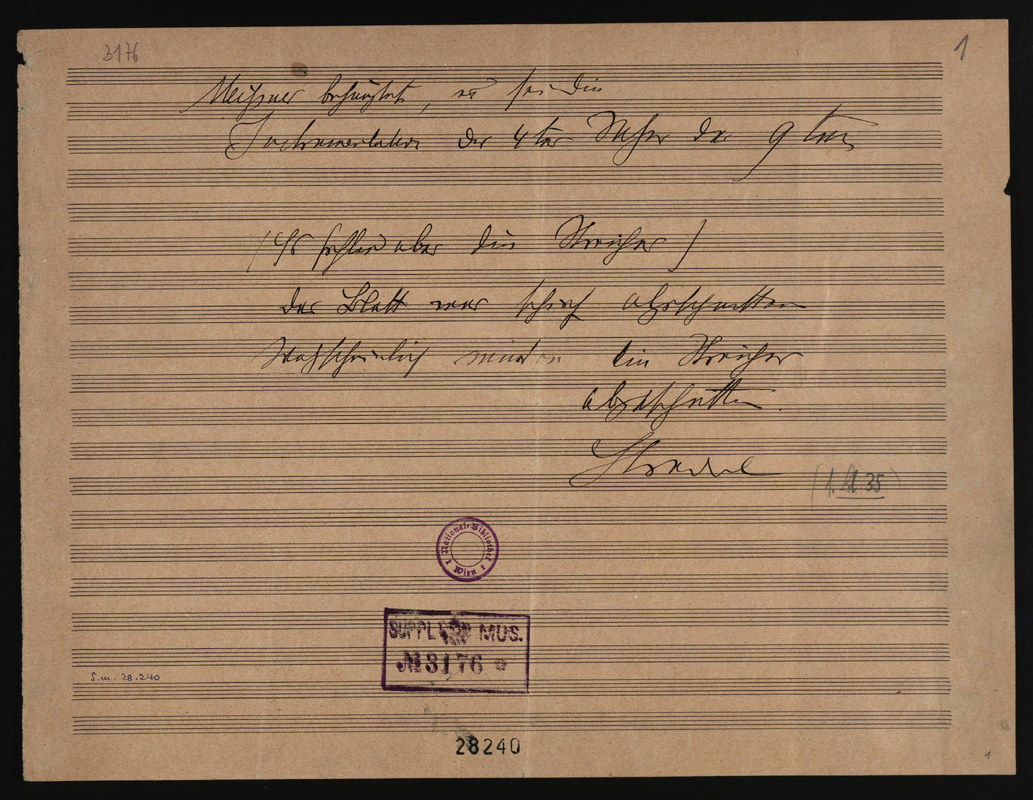 3176
1
Meißner behauptet, es sei die
Instrumentation der 4ten der 9ten
(Es fehlen aber die Streicher)
Das Blatt war schief abgeschnitten
Wahrscheinlich wurden die Streicher
abgeschnitten.
(1. 35)
National-Bibliothek
Wien
SUPPL MUS.
№ 3176 *
S.m. 28.240
28240
1